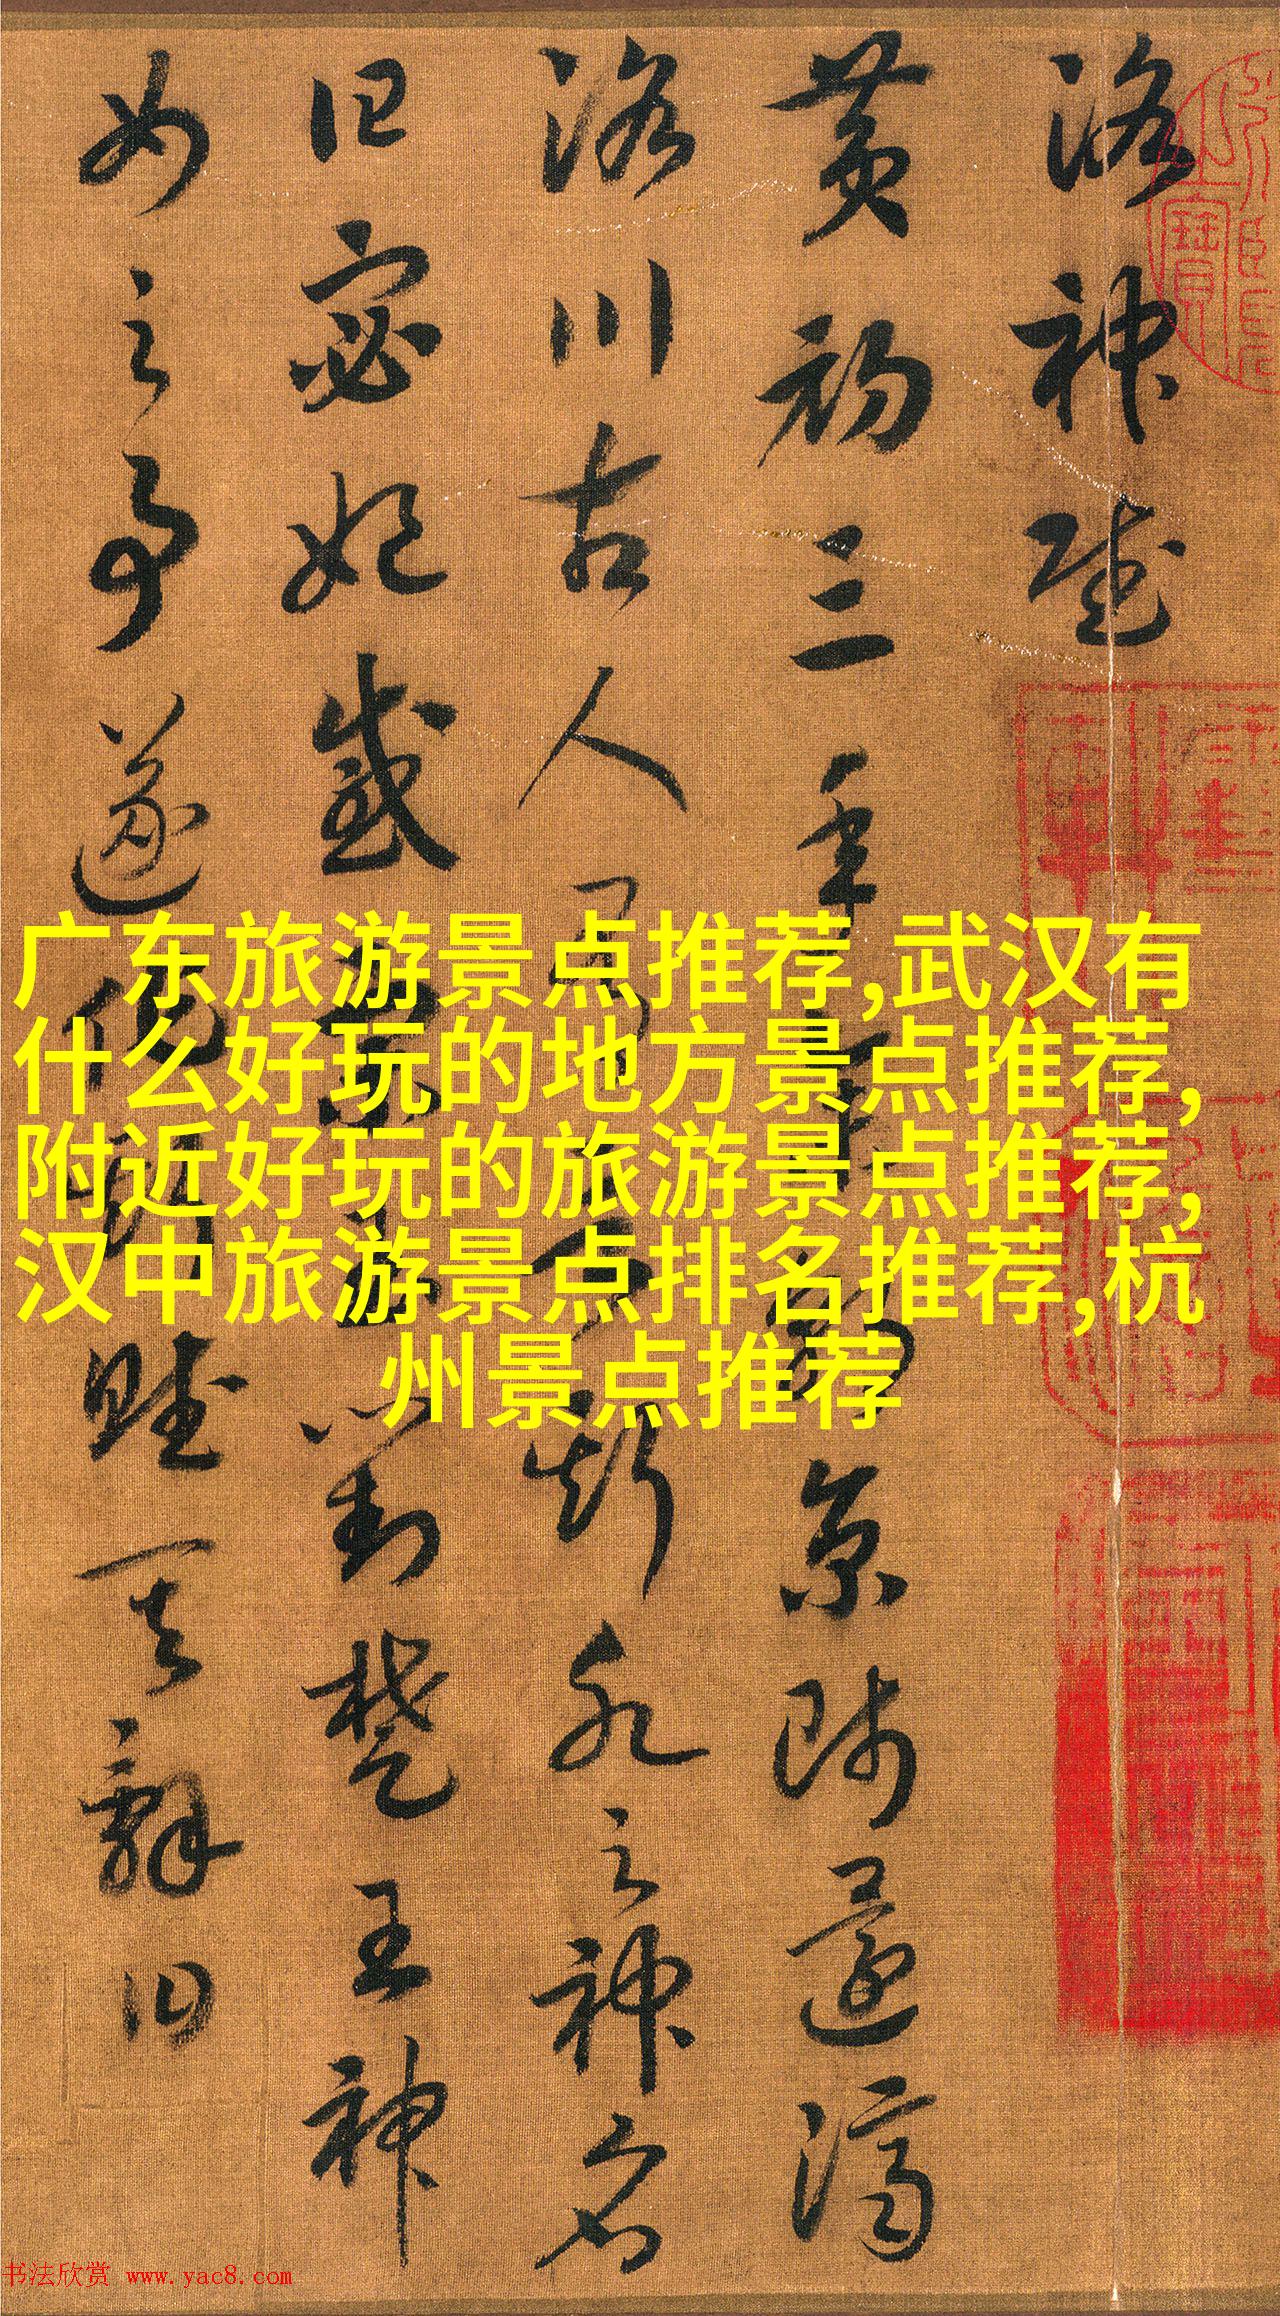 洛神賦
黄初三年京師還濟
洛川古人有斯水之神名
曰宓妃感宋玉對楚王神
女之事遂作斯賦其辭曰
广东旅游景点推荐,武汉有
什么好玩的地方景点推荐,
附近好玩的旅游景点推荐,
汉中旅游景点排名推荐,杭
州景点推荐
书法欣赏 www.yac8.com